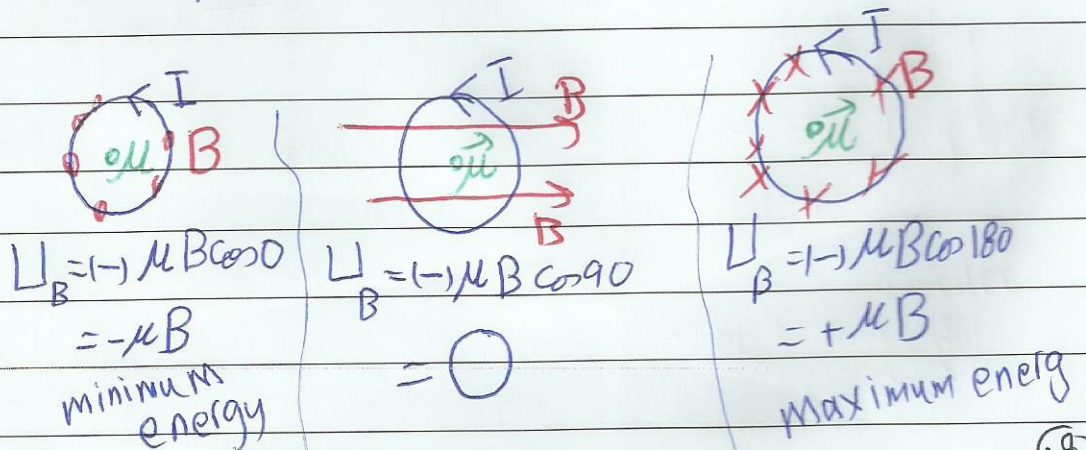 I
μ B
U_B = (-) μ B cos 0
= -μB
minimum
energy
I
B
μ⃗
B
U_B = (-) μ B cos 90
= 0
I
B
μ⃗
U_B = (-) μ B cos 180
= + μB
maximum energ